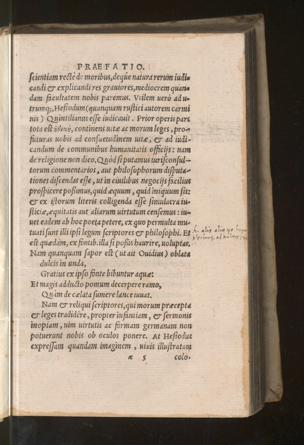 PRAEFATIO.
scientiam rectè de moribus, deque natura rerum iudi-
candi & explicandi res grauiores, mediocrem quan-
dam facultatem nobis paremus. Vtilem verò ad u-
trumque, Hesiodum (quanquam rustici autorem carmi
nis) Quintilianus esse iudicauit. Prior operis pars
tota est continens uitæ ac morum leges, pro-
futuras nobis ad consuetudinem uitæ, & ad iudi-
candum de communibus humanitatis officijs: nam
de religione non dico. Quòd si putamus iurisconsul-
torum commentarios, aut philosophorum disputa-
tiones discendas esse, ut in ciuilibus negocijs facilius
prospicere possimus, quid æquum, quid iniquum sit:
& ex istorum literis colligenda esse simulacra iu-
sticiæ, æquitatis aut aliarum uirtutum censemus: iu-
uet eadem ab hoc poeta petere, ex quo permulta mu-
tuati sunt illi ipsi legum scriptores & philosophi. Et
est quædam, ex fontib. illa si possis haurire, uoluptas.
Nam quanquam sapor est (ut ait Ouidius) oblata
dulcis in unda,
Gratius ex ipso fonte bibuntur aquæ:
Et magis adducto pomum decerpere ramo,
Quàm de cælata sumere lance iuuat.
Nam & reliqui scriptores, qui morum præcepta
& leges tradidêre, propter ieiunium, & sermonis
inopiam, uim uirtutis ac formam germanam non
potuerunt nobis ob oculos ponere. At Hesiodus
expressam quandam imaginem, uiuis illustratam
α 5 colo-